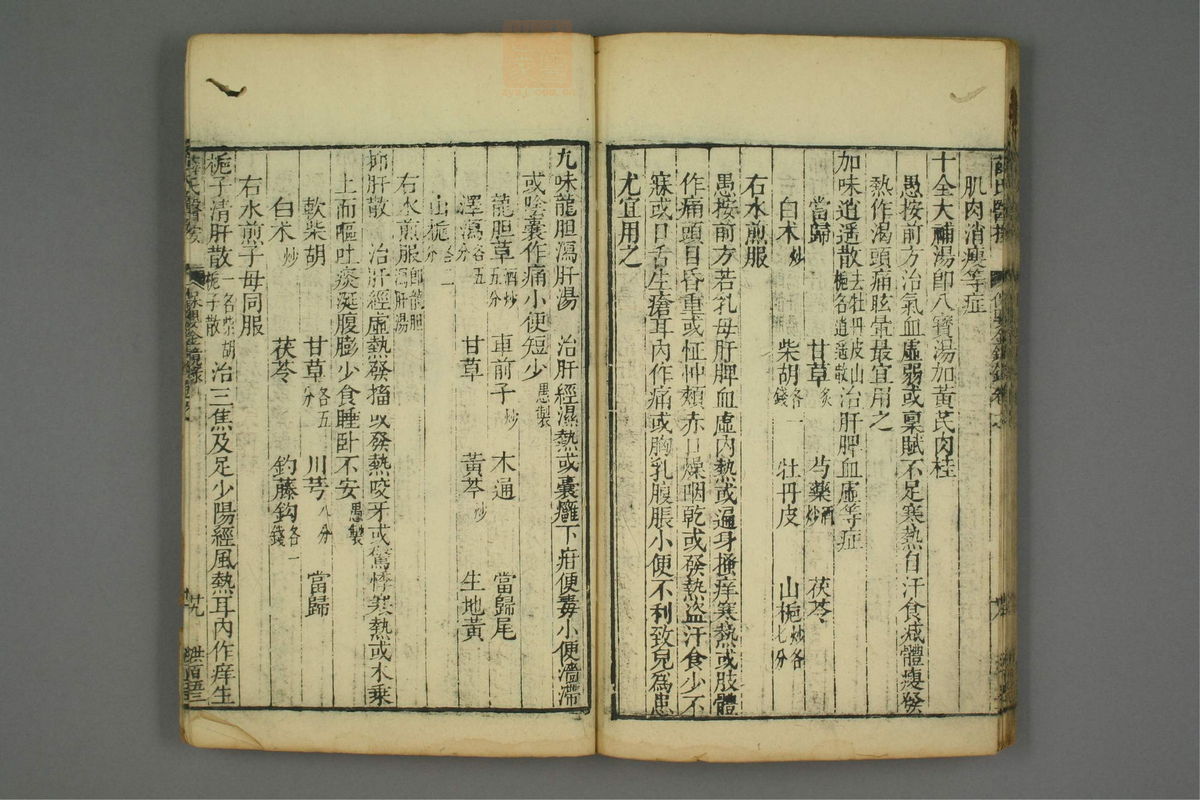 肌肉消瘦等症
十全大補湯即八寶湯加黃芪肉桂
愚按前方治氣血虛弱或稟賦不足寒熱自汗食减體瘦發
熱作渴頭痛眩暈最宜用之
加味逍遥散去牡丹皮山梔名逍遥散治肝脾血虛等症
當歸 甘草炙 芍藥酒炒 茯苓
白术炒 柴胡各一錢 牡丹皮 山梔炒各七分
右水煎服
愚按前方若乳母肝脾血虛内熱或遍身搔痒寒熱或肢體
作痛頭目昏重或怔忡頰赤口燥咽乾或發熱盗汗食少不
寐或口舌生瘡耳内作痛或胸乳腹脹小便不利致兒爲患
尤宜用之
九味龍胆瀉肝湯 治肝經濕熱或囊癰下疳便毒小便濇滯
或陰囊作痛小便短少愚製
龍胆草酒炒五分 車前子炒 木通 當歸尾
澤瀉各五分 甘草 黃芩炒 生地黃
山梔各二分
右水煎服即龍胆瀉肝湯
抑肝散 治肝經虛熱發搐或發熱咬牙或驚悸寒熱或木乘
土而嘔吐痰涎腹膨少食睡卧不安愚製
軟柴胡 甘草各五分 川芎八分 當歸
白术炒 茯苓 釣藤鈎各一錢
右水煎子母同服
梔子清肝散一名柴胡梔子散 治三焦及足少陽經風熱耳内作痒生
薛氏醫按 保嬰金鏡錄 廿九